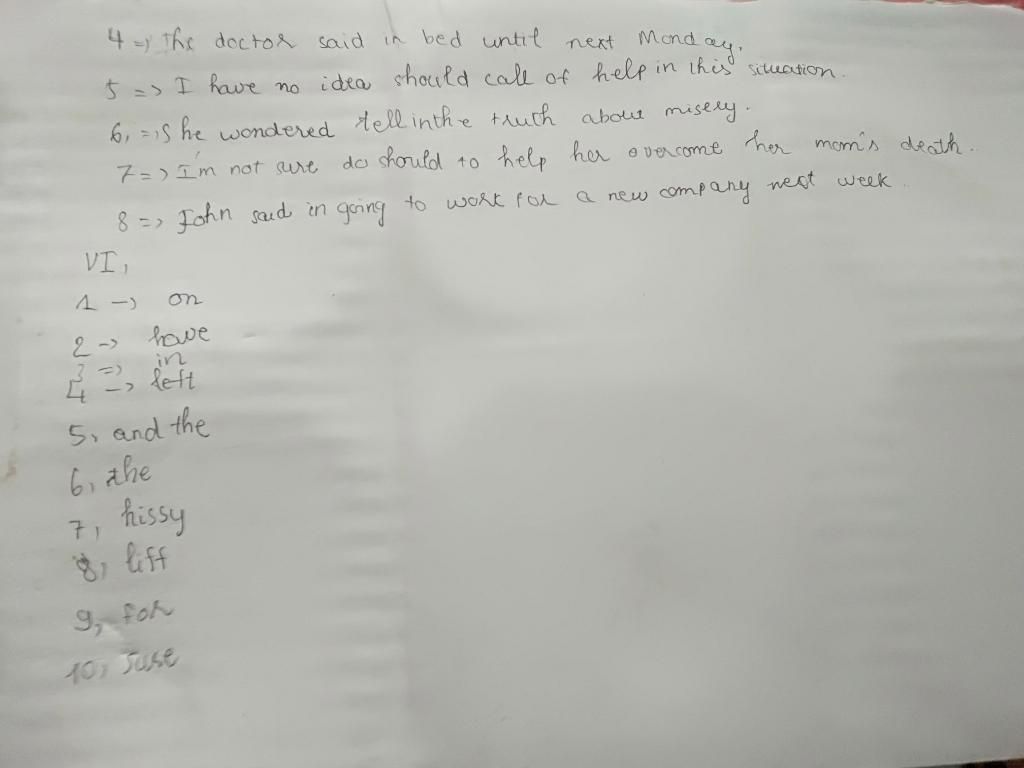 4 => The doctor said in bed until next Monday.
5 => I have no idea should call of help in this situation.
6, => She wondered tell in the truth about misery.
7 => I'm not sure do should to help her overcome her mom's death.
8 => John said in going to work for a new company next week.
VI,
1 -> on
2 -> have
3 => in
4 -> left
5, and the
6, the
7, hissy
8, liff
9, for
10, suse